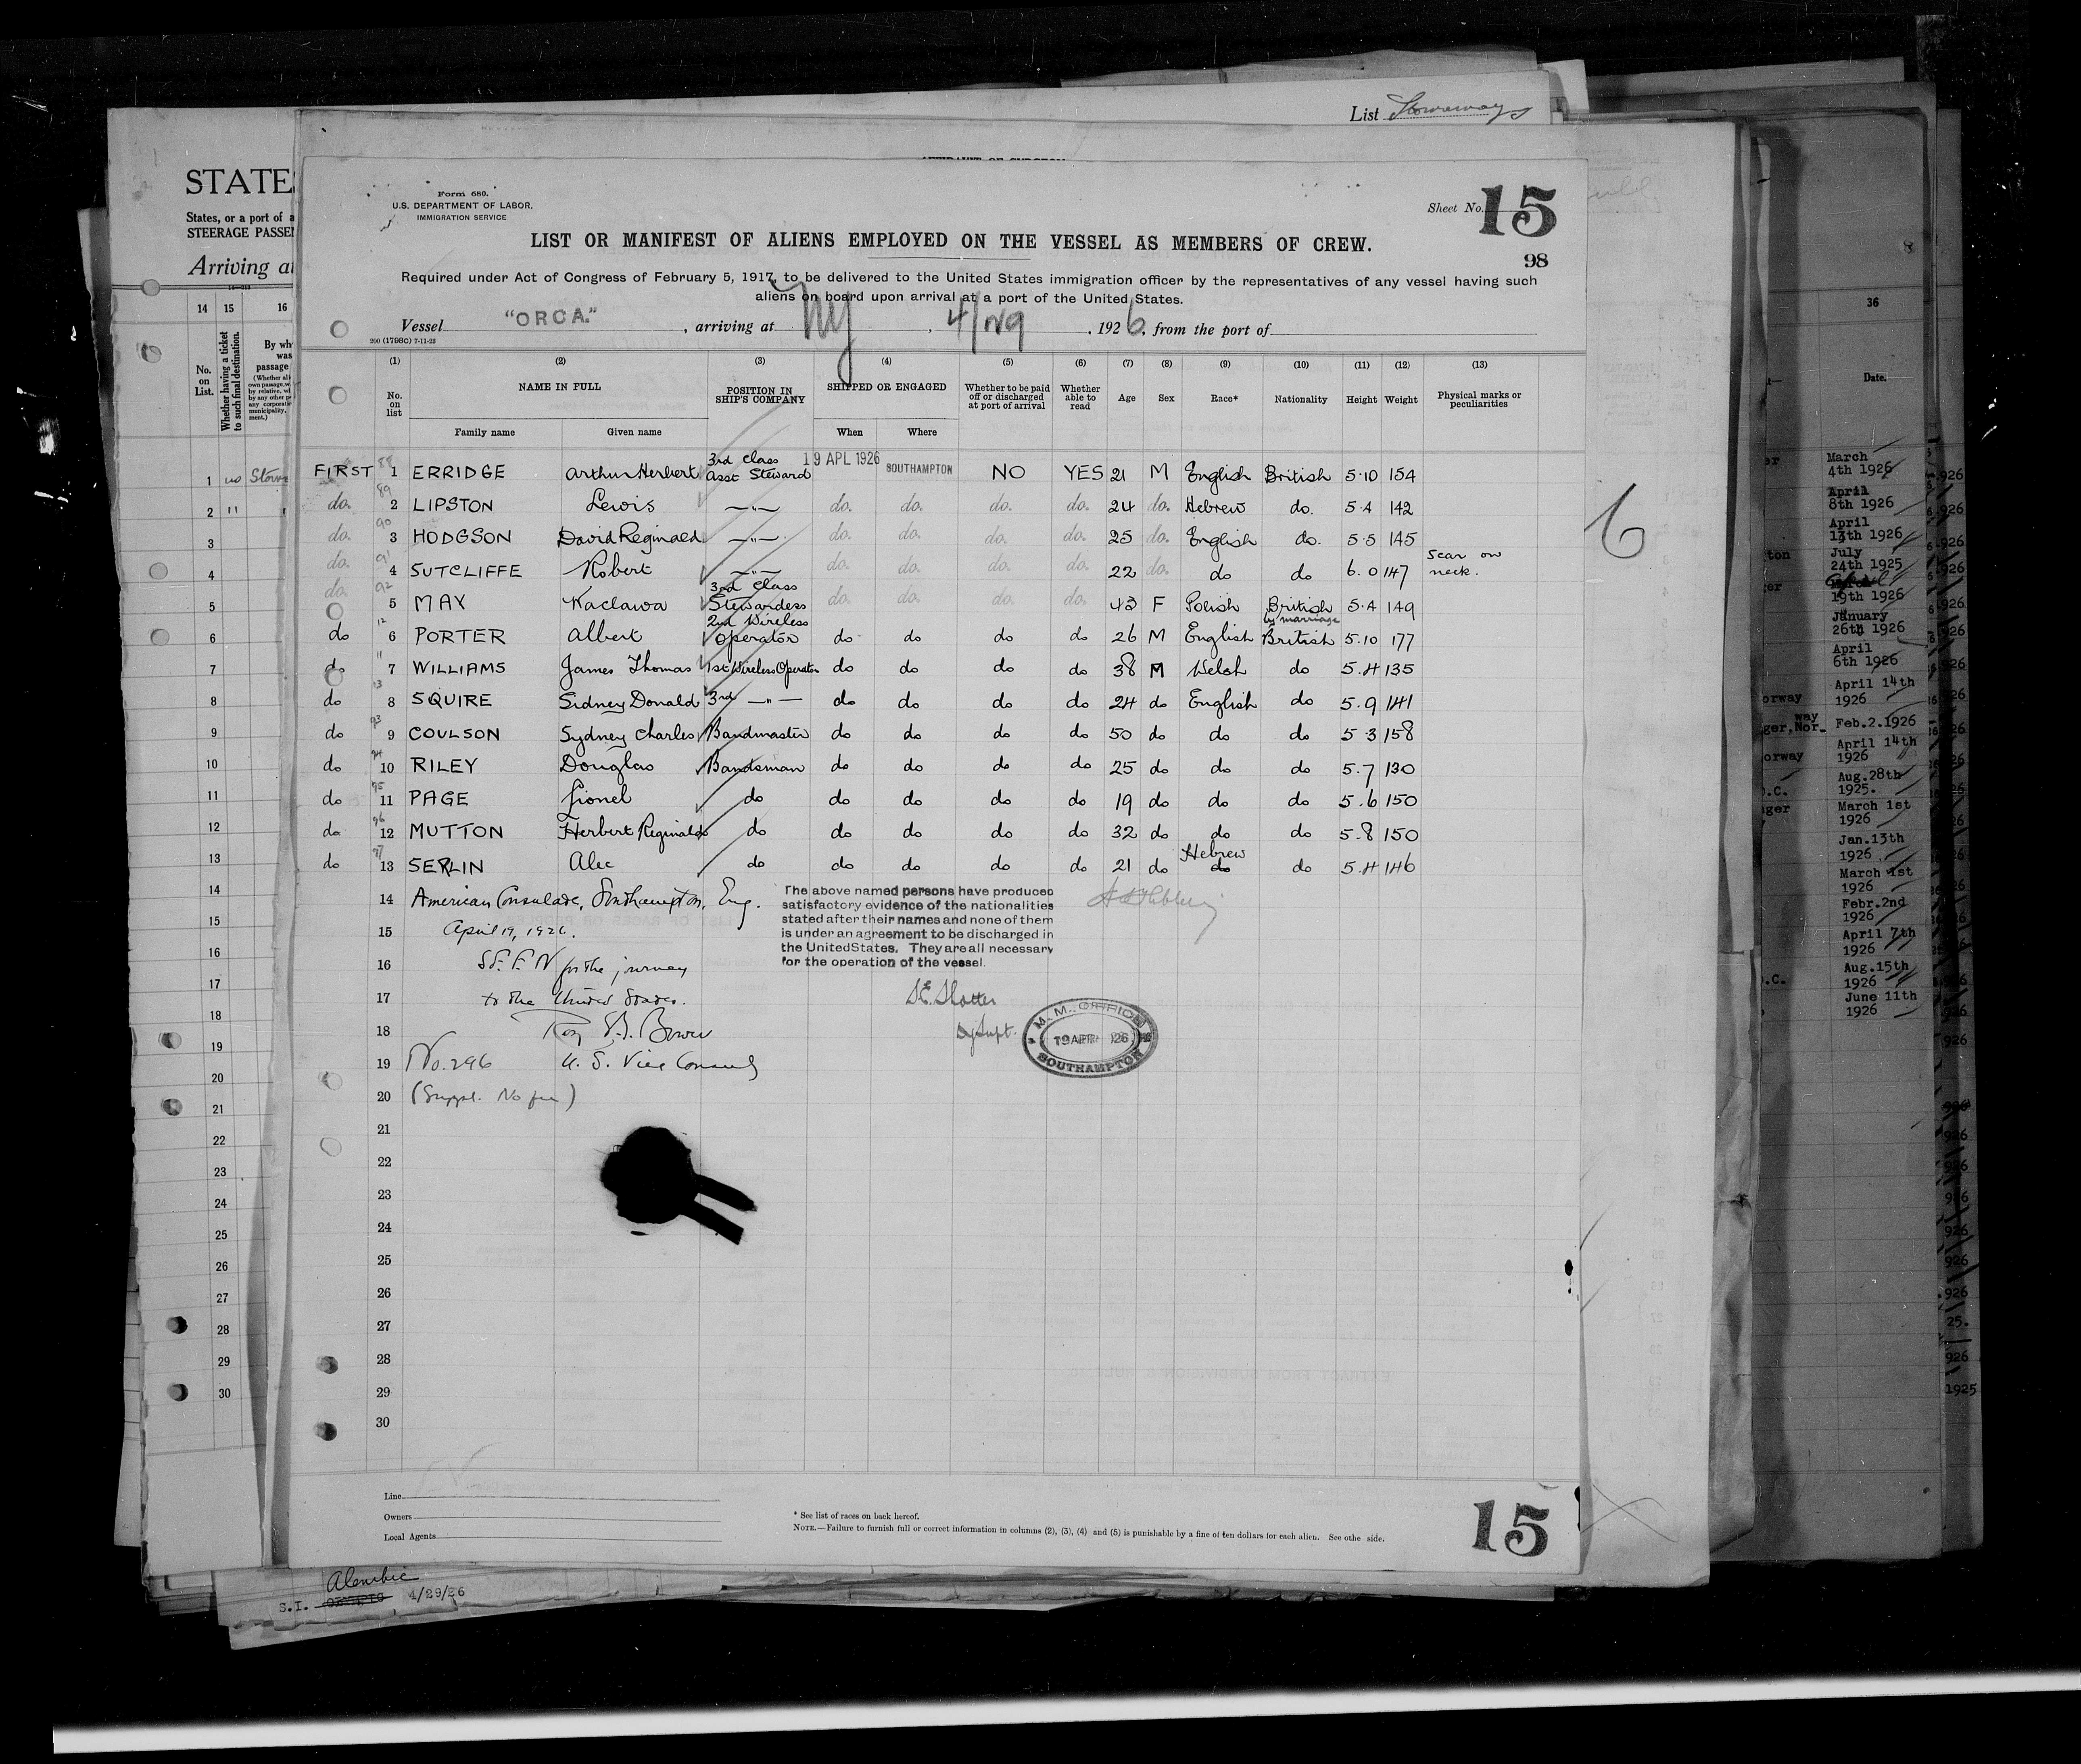 List Stowaways
STATES
States, or a port of a
STEERAGE PASSEN
Arriving at
14 15 16
No. on List.
Whether having a ticket to such final destination.
By wh
was
passage
Form 680.
U.S. DEPARTMENT OF LABOR.
IMMIGRATION SERVICE
Sheet No. 15
LIST OR MANIFEST OF ALIENS EMPLOYED ON THE VESSEL AS MEMBERS OF CREW.
98
Required under Act of Congress of February 5, 1917, to be delivered to the United States immigration officer by the representatives of any vessel having such
aliens on board upon arrival at a port of the United States.
Vessel "ORCA." , arriving at NY , 4/29 , 1926, from the port of
200 (1798C) 7-11-23
(1) (2) (3) (4) (5) (6) (7) (8) (9) (10) (11) (12) (13)
No. on list NAME IN FULL POSITION IN SHIP'S COMPANY SHIPPED OR ENGAGED Whether to be paid off or discharged at port of arrival Whether able to read Age Sex Race* Nationality Height Weight Physical marks or peculiarities
Family name Given name When Where
FIRST 88 1 ERRIDGE Arthur Herbert 3rd Class Asst Steward 19 APL 1926 SOUTHAMPTON NO YES 21 M English British 5·10 154
do. 89 2 LIPSTON Lewis —"— do. do. do. do. 24 do. Hebrew do. 5·4 142
do. 90 3 HODGSON David Reginald —"— do. do. do. do. 25 do. English do. 5·5 145
do. 91 4 SUTCLIFFE Robert —"— do. do. do. do. 22 do. do do 6.0 147 Scar on neck.
do. 92 5 MAY Kaclawa 3rd Class Stewardess do. do. do. do. 43 F Polish British by marriage 5·4 149
do 12 6 PORTER Albert 2nd Wireless Operator do do do do 26 M English British 5.10 177
do 11 7 WILLIAMS James Thomas 1st Wireless Operator do do do do 38 M Welsh do 5.4 135
do 13 8 SQUIRE Sidney Donald 3rd —"— do do do do 24 do English do 5.9 141
do 93 9 COULSON Sydney Charles Bandmaster do do do do 50 do do do 5 3 158
do 94 10 RILEY Douglas Bandsman do do do do 25 do do do 5.7 130
do 95 11 PAGE Lionel do do do do do 19 do do do 5.6 150
do 96 12 MUTTON Herbert Reginald do do do do do 32 do do do 5.8 150
do 97 13 SERLIN Alec do do do do do 21 do Hebrew do do 5.4 146
14 American Consulate, Southampton, Eng.
15 April 19, 1926.
16 for the journey
17 to the United States.
18 Bower
19 No. 296 U. S. Vice Consul
20 (Suppl. No fee)
The above named persons have produced
satisfactory evidence of the nationalities
stated after their names and none of them
is under an agreement to be discharged in
the United States. They are all necessary
for the operation of the vessel.
M. M. OFFICE
19 APR 1926
SOUTHAMPTON
21
22
23
24
25
26
27
28
29
30
Line
Owners
Local Agents
* See list of races on back hereof.
NOTE.—Failure to furnish full or correct information in columns (2), (3), (4) and (5) is punishable by a fine of ten dollars for each alien. See othe side.
15
1 no Stow
2 "
3
4
5
6
7
8
9
10
11
12
13
14
15
16
17
18
19
20
21
22
23
24
25
26
27
28
29
30
6
36
Date.
March
4th 1926
April
8th 1926
April
13th 1926
July
24th 1925
19th 1926
January
26th 1926
April
6th 1926
April 14th
1926
Feb.2.1926
April 14th
1926
Aug.28th
1925.
March 1st
1926
Jan.13th
1926
March 1st
1926
Febr.2nd
1926
April 7th
1926
Aug.15th
1926
June 11th
1926
Alembic
S.I. 4/29/26